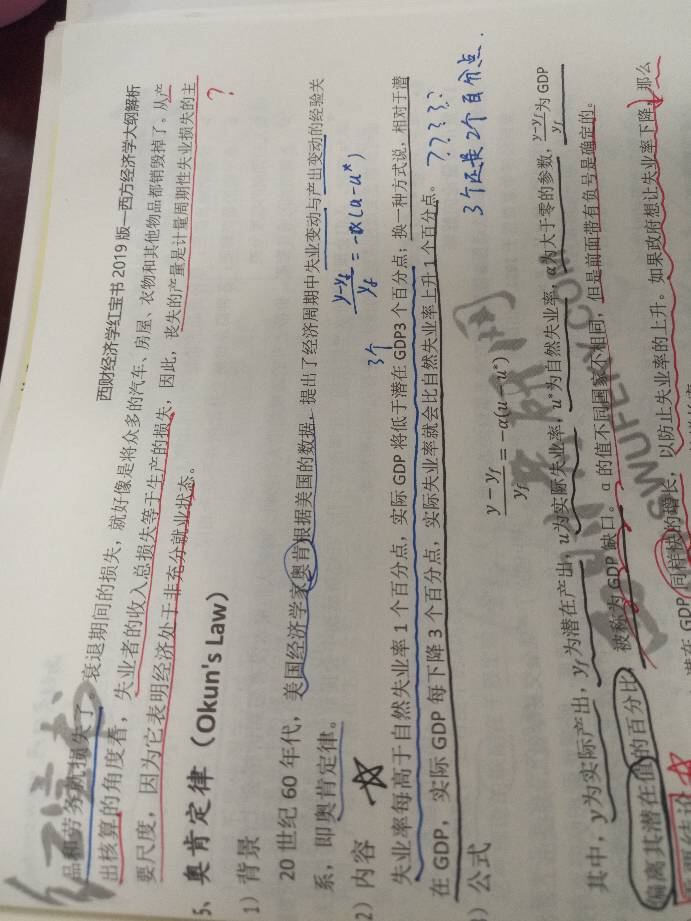 西财经济学红宝书 2019 版—西方经济学大纲解析
品和劳务就损失了，衰退期间的损失，就好像是将众多的汽车、房屋、衣物和其他物品都销毁掉了。从产
出核算的角度看，失业者的收入总损失等于生产的损失，因此，丧失的产量是计量周期性失业损失的主
要尺度，因为它表明经济处于非充分就业状态。
?
5、奥肯定律（Okun's Law）
1）背景
20 世纪 60 年代，美国经济学家奥肯根据美国的数据，提出了经济周期中失业变动与产出变动的经验关
系，即奥肯定律。
(y-yf)/yf = -α(u-u*)
2）内容
3个
失业率每高于自然失业率 1 个百分点，实际 GDP 将低于潜在 GDP3 个百分点；换一种方式说，相对于潜
在 GDP，实际 GDP 每下降 3 个百分点，实际失业率就会比自然失业率上升 1 个百分点。
?????
3个还是2个百分点.
）公式
(y-yf)/yf=-α(u-u*)
其中，y为实际产出，yf为潜在产出，u为实际失业率，u*为自然失业率，α为大于零的参数，(y-yf)/yf为 GDP
偏离其潜在值的百分比，被称为 GDP 缺口。α 的值不同国家不相同，但是前面带有负号是确定的。
SWUFEKY.COM
潜在 GDP 同样快的增长，以防止失业率的上升。如果政府想让失业率下降，那么